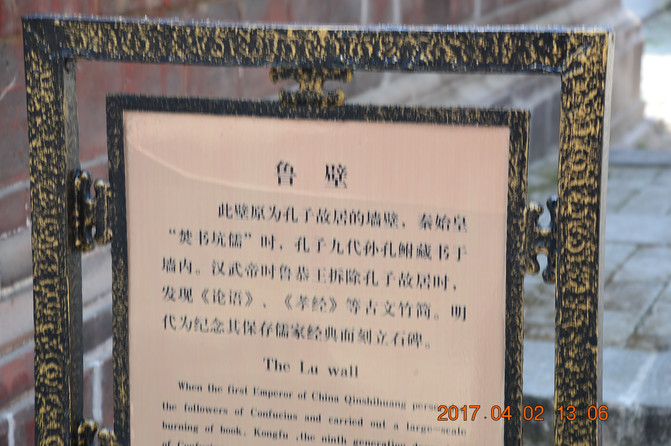 鲁 壁
此壁原为孔子故居的墙壁，秦始皇
“焚书坑儒”时，孔子九代孙孔鲋藏书于
墙内。汉武帝时鲁恭王拆除孔子故居时，
发现《论语》、《孝经》等古文竹简。明
代为纪念其保存儒家经典而刻立石碑。
The Lu wall
When the first Emperor of China Qinshihuang
the followers of Confucius and carried out a large-scale
burning of book, Kongfu ,the ninth generation
2017.04.02 13:06